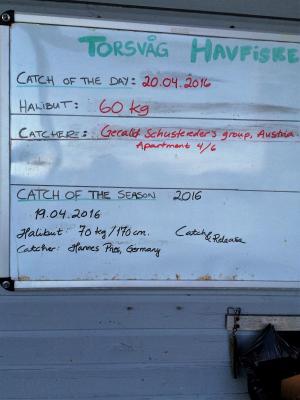 TORSVÅG HAVFISKE
CATCH OF THE DAY: 20.04.2016
HALIBUT: 60 kg
CATCHER: Gerald Schusteeder's group, Austria
Apartment 4/6
CATCH OF THE SEASON 2016
19.04.2016
Halibut: 70 kg/170 cm. Catch & Release
Catcher: Hannes Pries, Germany